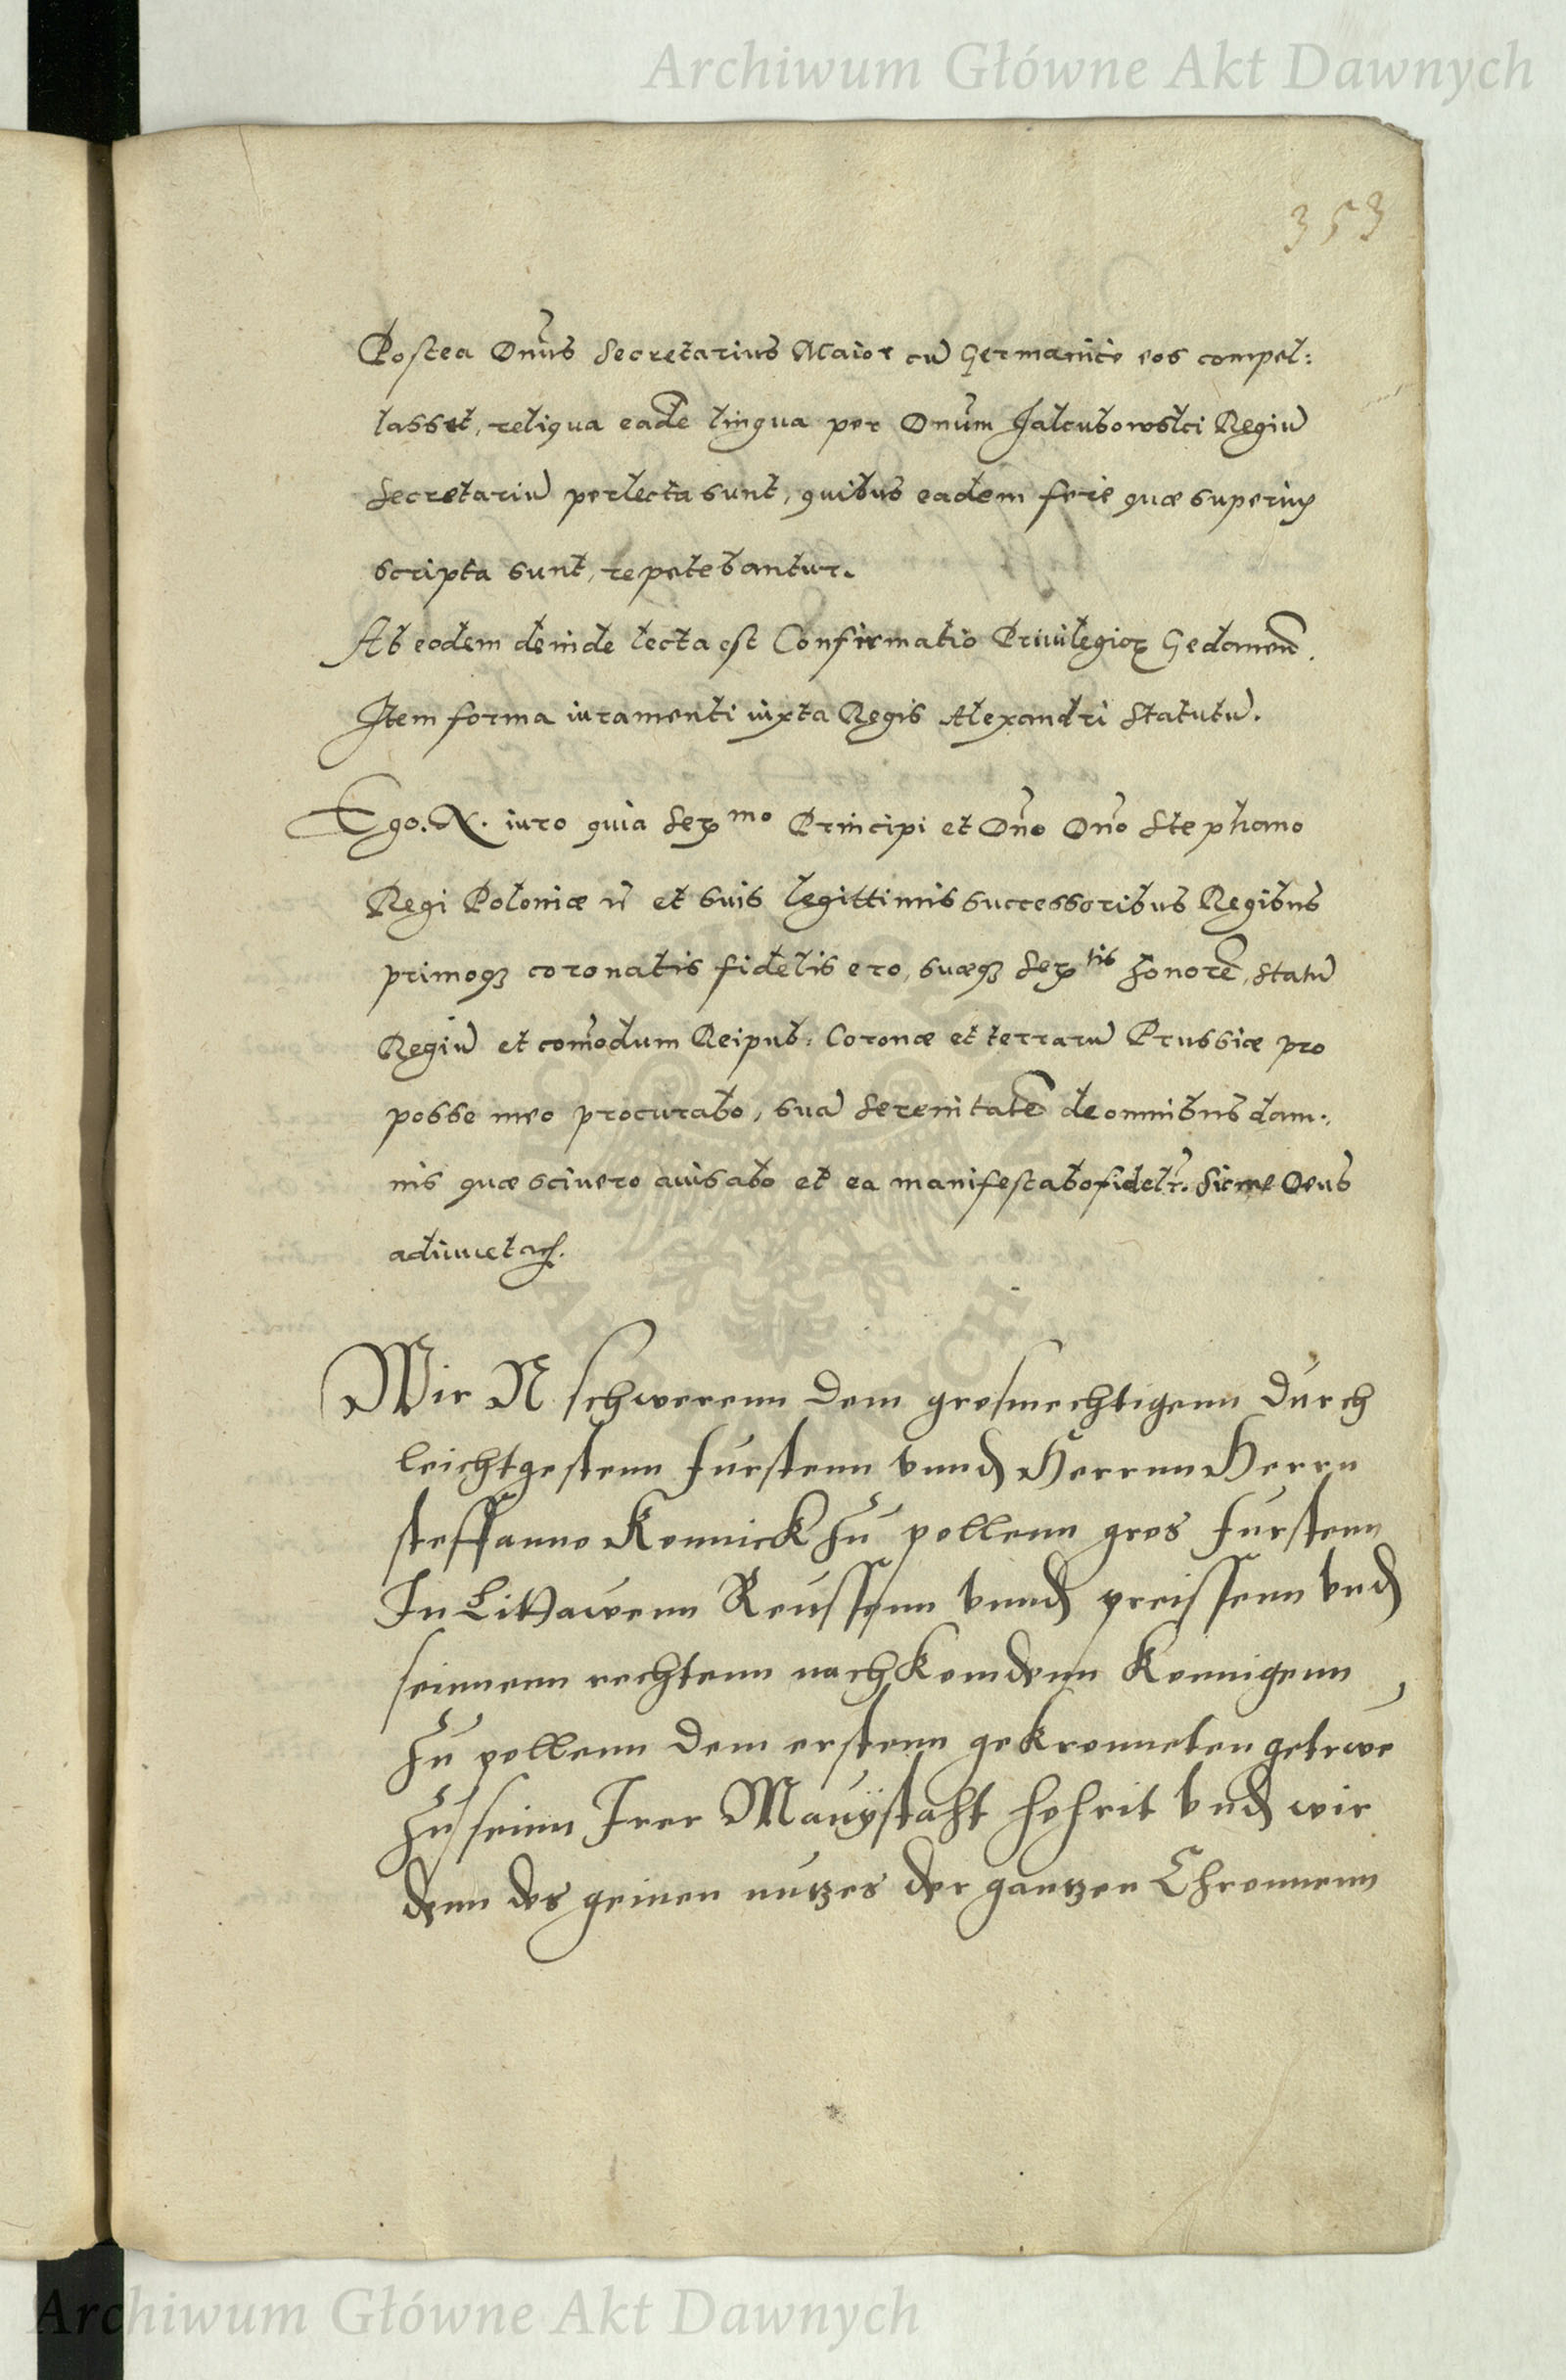 Archiwum Główne Akt Dawnych
353
Postea Dnus Secretarius Maior cu Germanice eos compel:
lasset, reliqua eade lingua per Dnum Jakubowski Regiu
Secretariu perlecta sunt, quibus eadem fere quæ superius
scripta sunt, repetebantur.
Ab eodem deinde lecta est Confirmatio Privilegior Gedanen.
Item forma iuramenti iuxta Regis Alexandri Statutu.
Ego. N. iuro quia Ser mo Principi et Dno Dno Stephano
Regi Poloniæ et suis legittimis successoribus Regibus
primoq coronatis fidelis ero, suæq Ser tis honore, statu
Regiu et comodum Reipub: Coronæ et terraru Prussiæ pro
posse meo procurabo, sua Serenitate de omnibus dam:
nis quæ scivero avisabo et ea manifestabo fidelr. Sic me Deus
adiuvet
Wir N schwerenn dem grosmechtigenn durch
leichtgestenn furstenn vnnd Herrnn Herrn
steffanno Konnick zu pollenn gros furstenn
In Littawenn Reussenn vnnd preissenn vnd
seinnenn rechtenn nachkomdenn konnigenn
zu pollenn dem erstenn gekronneten getrwe
zu seinn Irer Mauÿstaht hoheit vnd wir
denn des geinen nutzes der gantzen Chronnenn
ARCHIWUM GŁÓWNE AKT DAWNYCH
Archiwum Główne Akt Dawnych